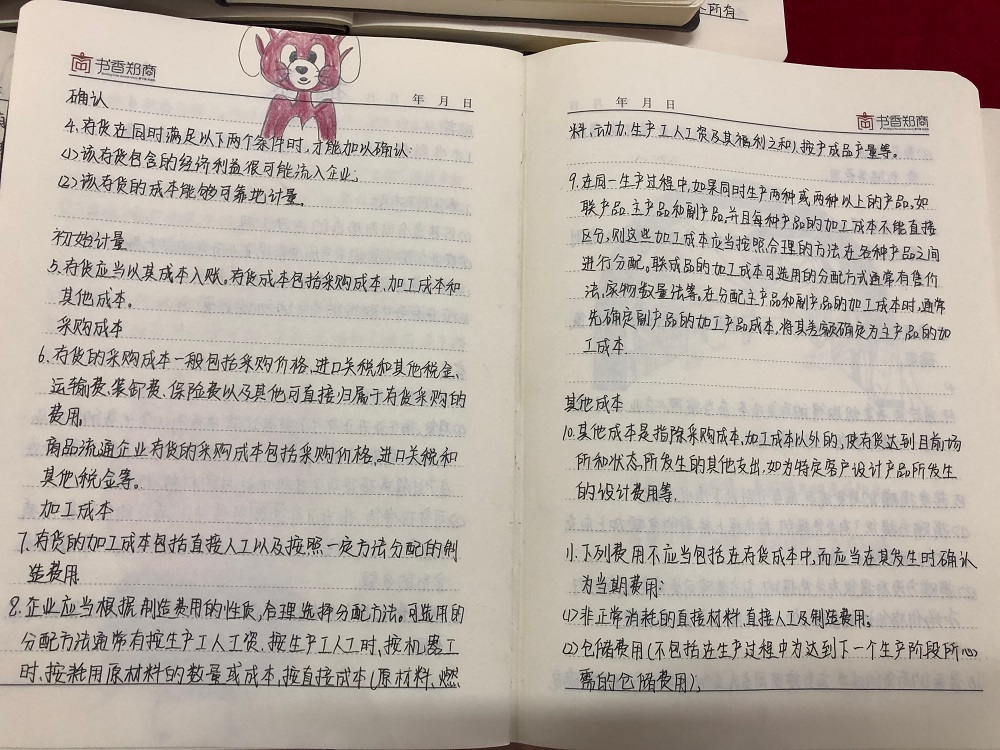 所有
书香郑商
年 月 日
确认
4.存货在同时满足以下两个条件时,才能加以确认:
(1)该存货包含的经济利益很可能流入企业;
(2)该存货的成本能够可靠地计量。
初始计量
5.存货应当以其成本入账,存货成本包括采购成本、加工成本和
其他成本。
采购成本
6.存货的采购成本一般包括采购价格、进口关税和其他税金、
运输费、装卸费、保险费以及其他可直接归属于存货采购的
费用。
商品流通企业存货的采购成本包括采购价格、进口关税和
其他税金等。
加工成本
7.存货的加工成本包括直接人工以及按照一定方法分配的制
造费用。
8.企业应当根据制造费用的性质,合理选择分配方法。可选用的
分配方法通常有按生产工人工资、按生产工人工时、按机器工
时、按耗用原材料的数量或成本、按直接成本(原材料、燃
年 月 日
书香郑商
料、动力、生产工人工资及其福利之和)、按产成品产量等。
9.在同一生产过程中,如果同时生产两种或两种以上的产品,如
联产品、主产品和副产品,并且每种产品的加工成本不能直接
区分,则这些加工成本应当按照合理的方法在各种产品之间
进行分配。联成品的加工成本可选用的分配方式通常有售价
法、实物数量法等。在分配主产品和副产品的加工成本时,通常
先确定副产品的加工产品成本,将其差额确定为主产品的加
工成本.
其他成本
10.其他成本是指除采购成本、加工成本以外的,使存货达到目前场
所和状态所发生的其他支出,如为特定客户设计产品所发生
的设计费用等.
11.下列费用不应当包括在存货成本中,而应当在其发生时确认
为当期费用:
(1)非正常消耗的直接材料、直接人工及制造费用;
(2)仓储费用(不包括在生产过程中为达到下一个生产阶段所必
需的仓储费用);